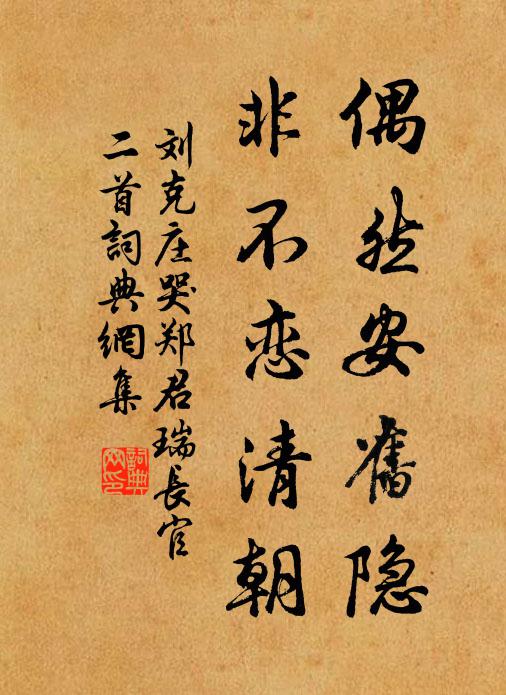 偶然安舊隐
非不恋清朝
刘克庄哭郑君瑞长官
二首詞典網集